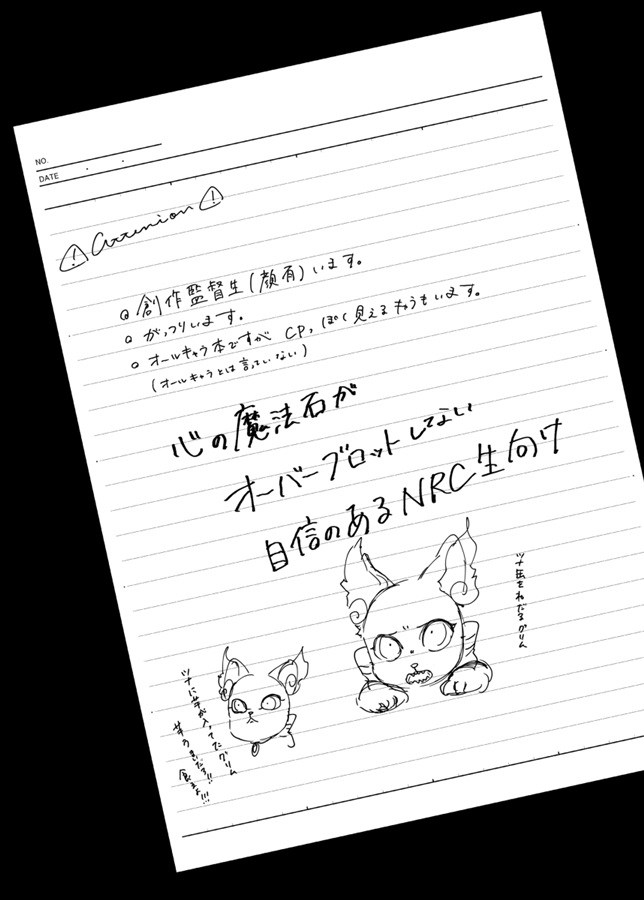 NO.
DATE
Attenion
創作監督生(顔有)います。
がっつりいます。
オールキャラ本ですが CPっぽく見えるキャラもいます。
(オールキャラとは言っていない)
心の魔法石が
オーバーブロットしてない
自信のあるNRC生向け
ツナ缶をねだるグリム
ツナに芋が入ってたグリム
食えよ!!!